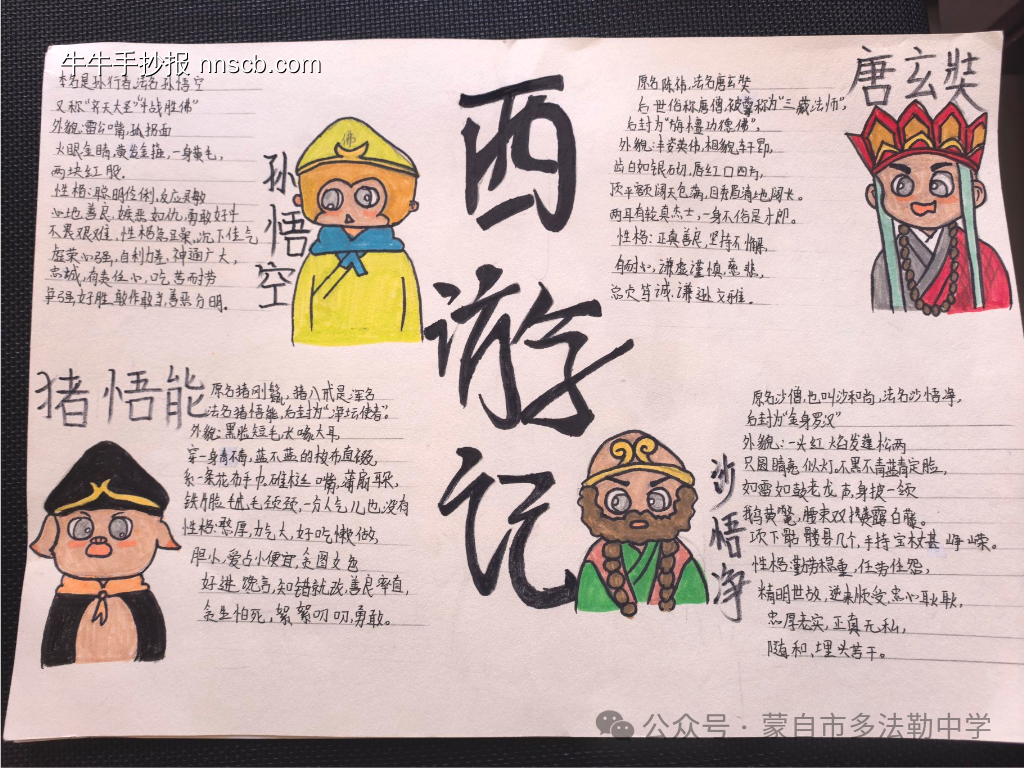 牛牛手抄报 nnscb.com
本名是孙行者,法名孙悟空
又称"齐天大圣""斗战胜佛"
外貌:雷公嘴,孤拐面
火眼金睛,黄发金箍,一身黄毛,
两块红股。
性格:聪明伶俐,反应灵敏
心地善良,嫉恶如仇,勇敢好斗
不畏艰难,性格急躁,沉下住气
虚荣心强,自利力差,神通广大,
忠诚,有责任心,吃苦而劳
争强好胜,敢作敢当,善恶分明。
孙悟空
佛
西游记
唐玄奘
原名陈祎,法名唐玄奘
后世俗称唐僧,被尊称为"三藏法师",
后封为"旃檀功德佛",
外貌:丰姿英伟,相貌轩昂,
齿白如银砌,唇红口四方,
顶平额阔天仓满,目秀眉清地阁长。
两耳有轮真杰士,一身不俗是才郎。
性格:正真善良,坚持不懈,
有耐心,谦虚谨慎,慈悲,
忠穴笃诚,谦逊文雅。
猪悟能
原名猪刚鬣,猪八戒是浑名
法名猪悟能,后封为"净坛使者"。
外貌:黑脸短毛长喙大耳
穿一身青不青,蓝不蓝的梭布直裰,
系一条花布手巾,碓梃嘴,蒲扇耳朵,
铁片脸,毛颈,一分人气儿也没有
性格:憨厚,力气大,好吃懒做,
胆小,爱占小便宜,贪图女色
好进谗言,知错就改,善良率直,
贪生怕死,絮絮叨叨,勇敢。
沙悟净
原名沙僧,也叫沙和尚,法名沙悟净,
后封为"金身罗汉"
外貌:一头红焰发蓬松两
只圆睛亮似灯,不黑不青蓝靛脸,
如雷如鼓老龙声,身披一领
鹅黄氅,腰束双攒露白藤。
项下骷髅悬几个,手持宝杖甚峥嵘。
性格:勤劳稳重,任劳任怨,
精明世故,逆来顺受,忠心耿耿,
忠厚老实,正真无私,
随和,埋头苦干。
公众号·蒙自市多法勒中学